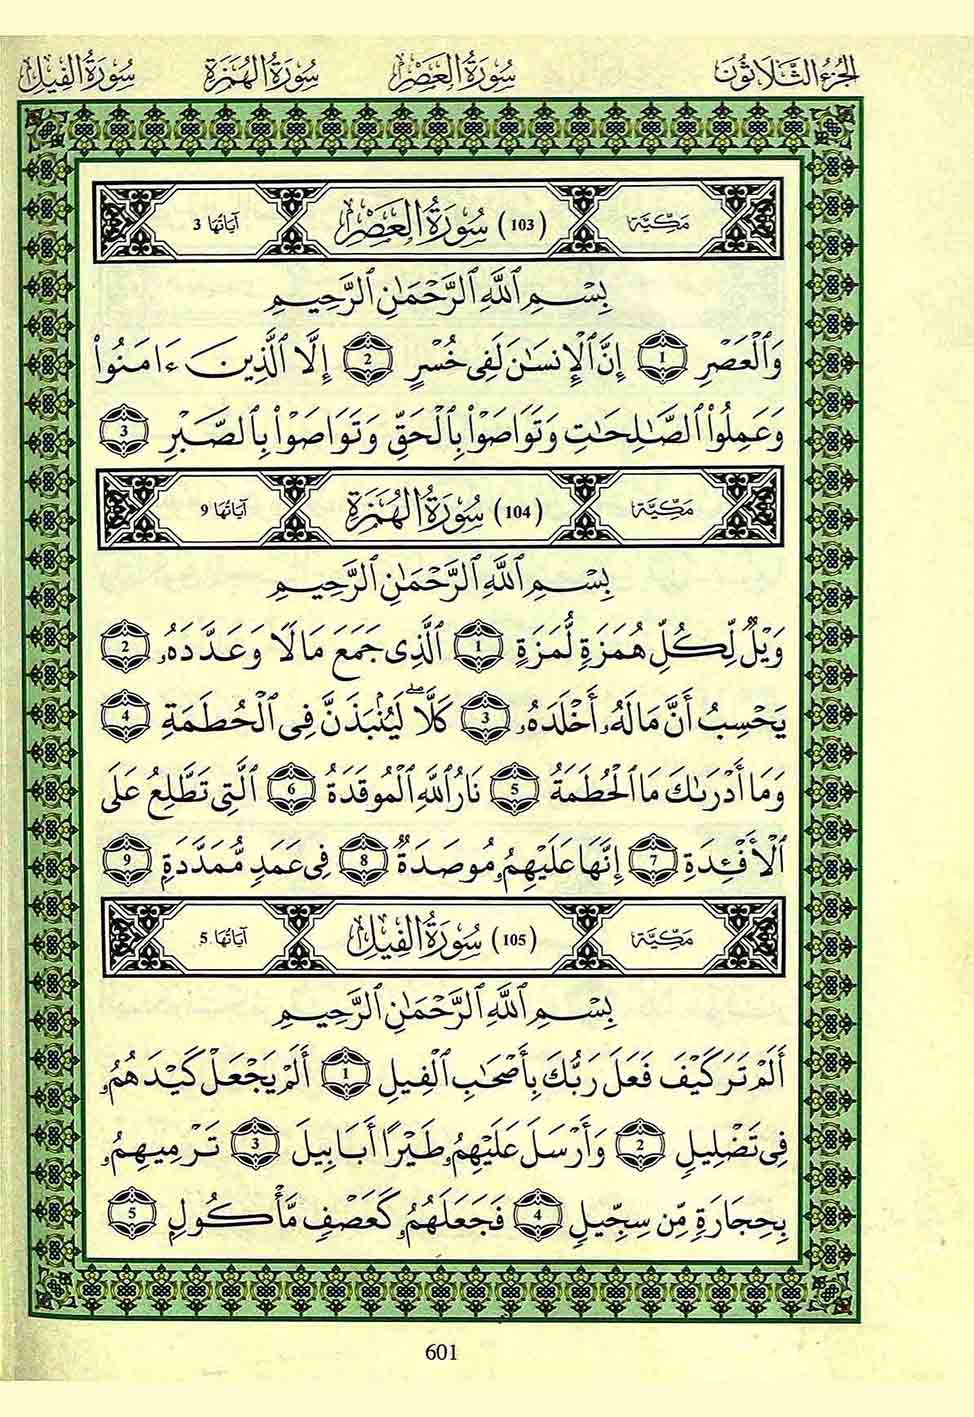 الجزء الثلاثون سورة العصر سورة الهمزة سورة الفيل
مكية (103) سورة العصر آياتها 3
بِسْمِ ٱللَّهِ ٱلرَّحْمَٰنِ ٱلرَّحِيمِ
وَٱلْعَصْرِ 1 إِنَّ ٱلْإِنسَٰنَ لَفِى خُسْرٍ 2 إِلَّا ٱلَّذِينَ ءَامَنُوا۟
وَعَمِلُوا۟ ٱلصَّٰلِحَٰتِ وَتَوَاصَوْا۟ بِٱلْحَقِّ وَتَوَاصَوْا۟ بِٱلصَّبْرِ 3
مكية (104) سورة الهمزة آياتها 9
بِسْمِ ٱللَّهِ ٱلرَّحْمَٰنِ ٱلرَّحِيمِ
وَيْلٌ لِّكُلِّ هُمَزَةٍ لُّمَزَةٍ 1 ٱلَّذِى جَمَعَ مَالًا وَعَدَّدَهُۥ 2
يَحْسِبُ أَنَّ مَالَهُۥ أَخْلَدَهُۥ 3 كَلَّا ۖ لَيُنۢبَذَنَّ فِى ٱلْحُطَمَةِ 4
وَمَا أَدْرَىٰكَ مَا ٱلْحُطَمَةُ 5 نَارُ ٱللَّهِ ٱلْمُوقَدَةُ 6 ٱلَّتِى تَطَّلِعُ عَلَى
ٱلْأَفْـِٔدَةِ 7 إِنَّهَا عَلَيْهِمُۥ مُوصَدَةٌ 8 فِى عَمَدٍ مُّمَدَّدَةٍ 9
مكية (105) سورة الفيل آياتها 5
بِسْمِ ٱللَّهِ ٱلرَّحْمَٰنِ ٱلرَّحِيمِ
أَلَمْ تَرَ كَيْفَ فَعَلَ رَبُّكَ بِأَصْحَٰبِ ٱلْفِيلِ 1 أَلَمْ يَجْعَلْ كَيْدَهُمُۥ
فِى تَضْلِيلٍ 2 وَأَرْسَلَ عَلَيْهِمُۥ طَيْرًا أَبَابِيلَ 3 تَرْمِيهِمُۥ
بِحِجَارَةٍ مِّن سِجِّيلٍ 4 فَجَعَلَهُمُۥ كَعَصْفٍ مَّأْكُولٍ 5
601